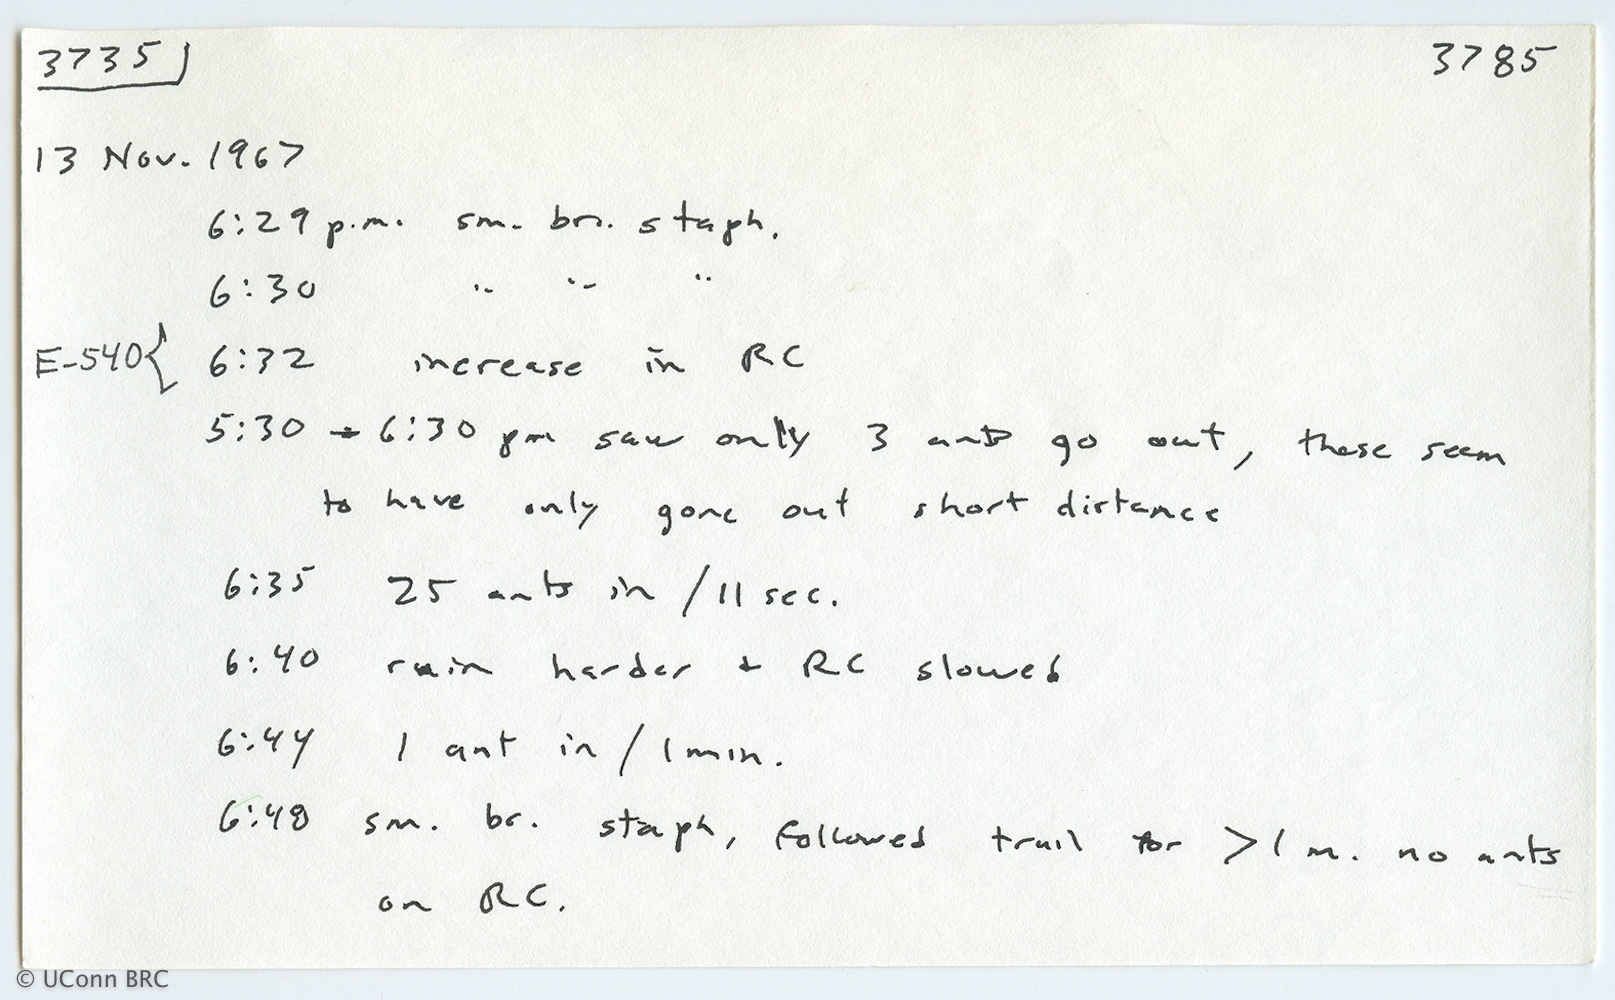 3735 3785
13 Nov. 1967
6:29 p.m. sm. brn. staph.
6:30 " " "
E-540 { 6:32 increase in RC
5:30 → 6:30 pm saw only 3 ants go out, these seem
to have only gone out short distance
6:35 25 ants in /11 sec.
6:40 rain harder + RC slowed
6:44 1 ant in / 1 min.
6:48 sm. br. staph, followed trail for >1 m. no ants
on RC.
© UConn BRC